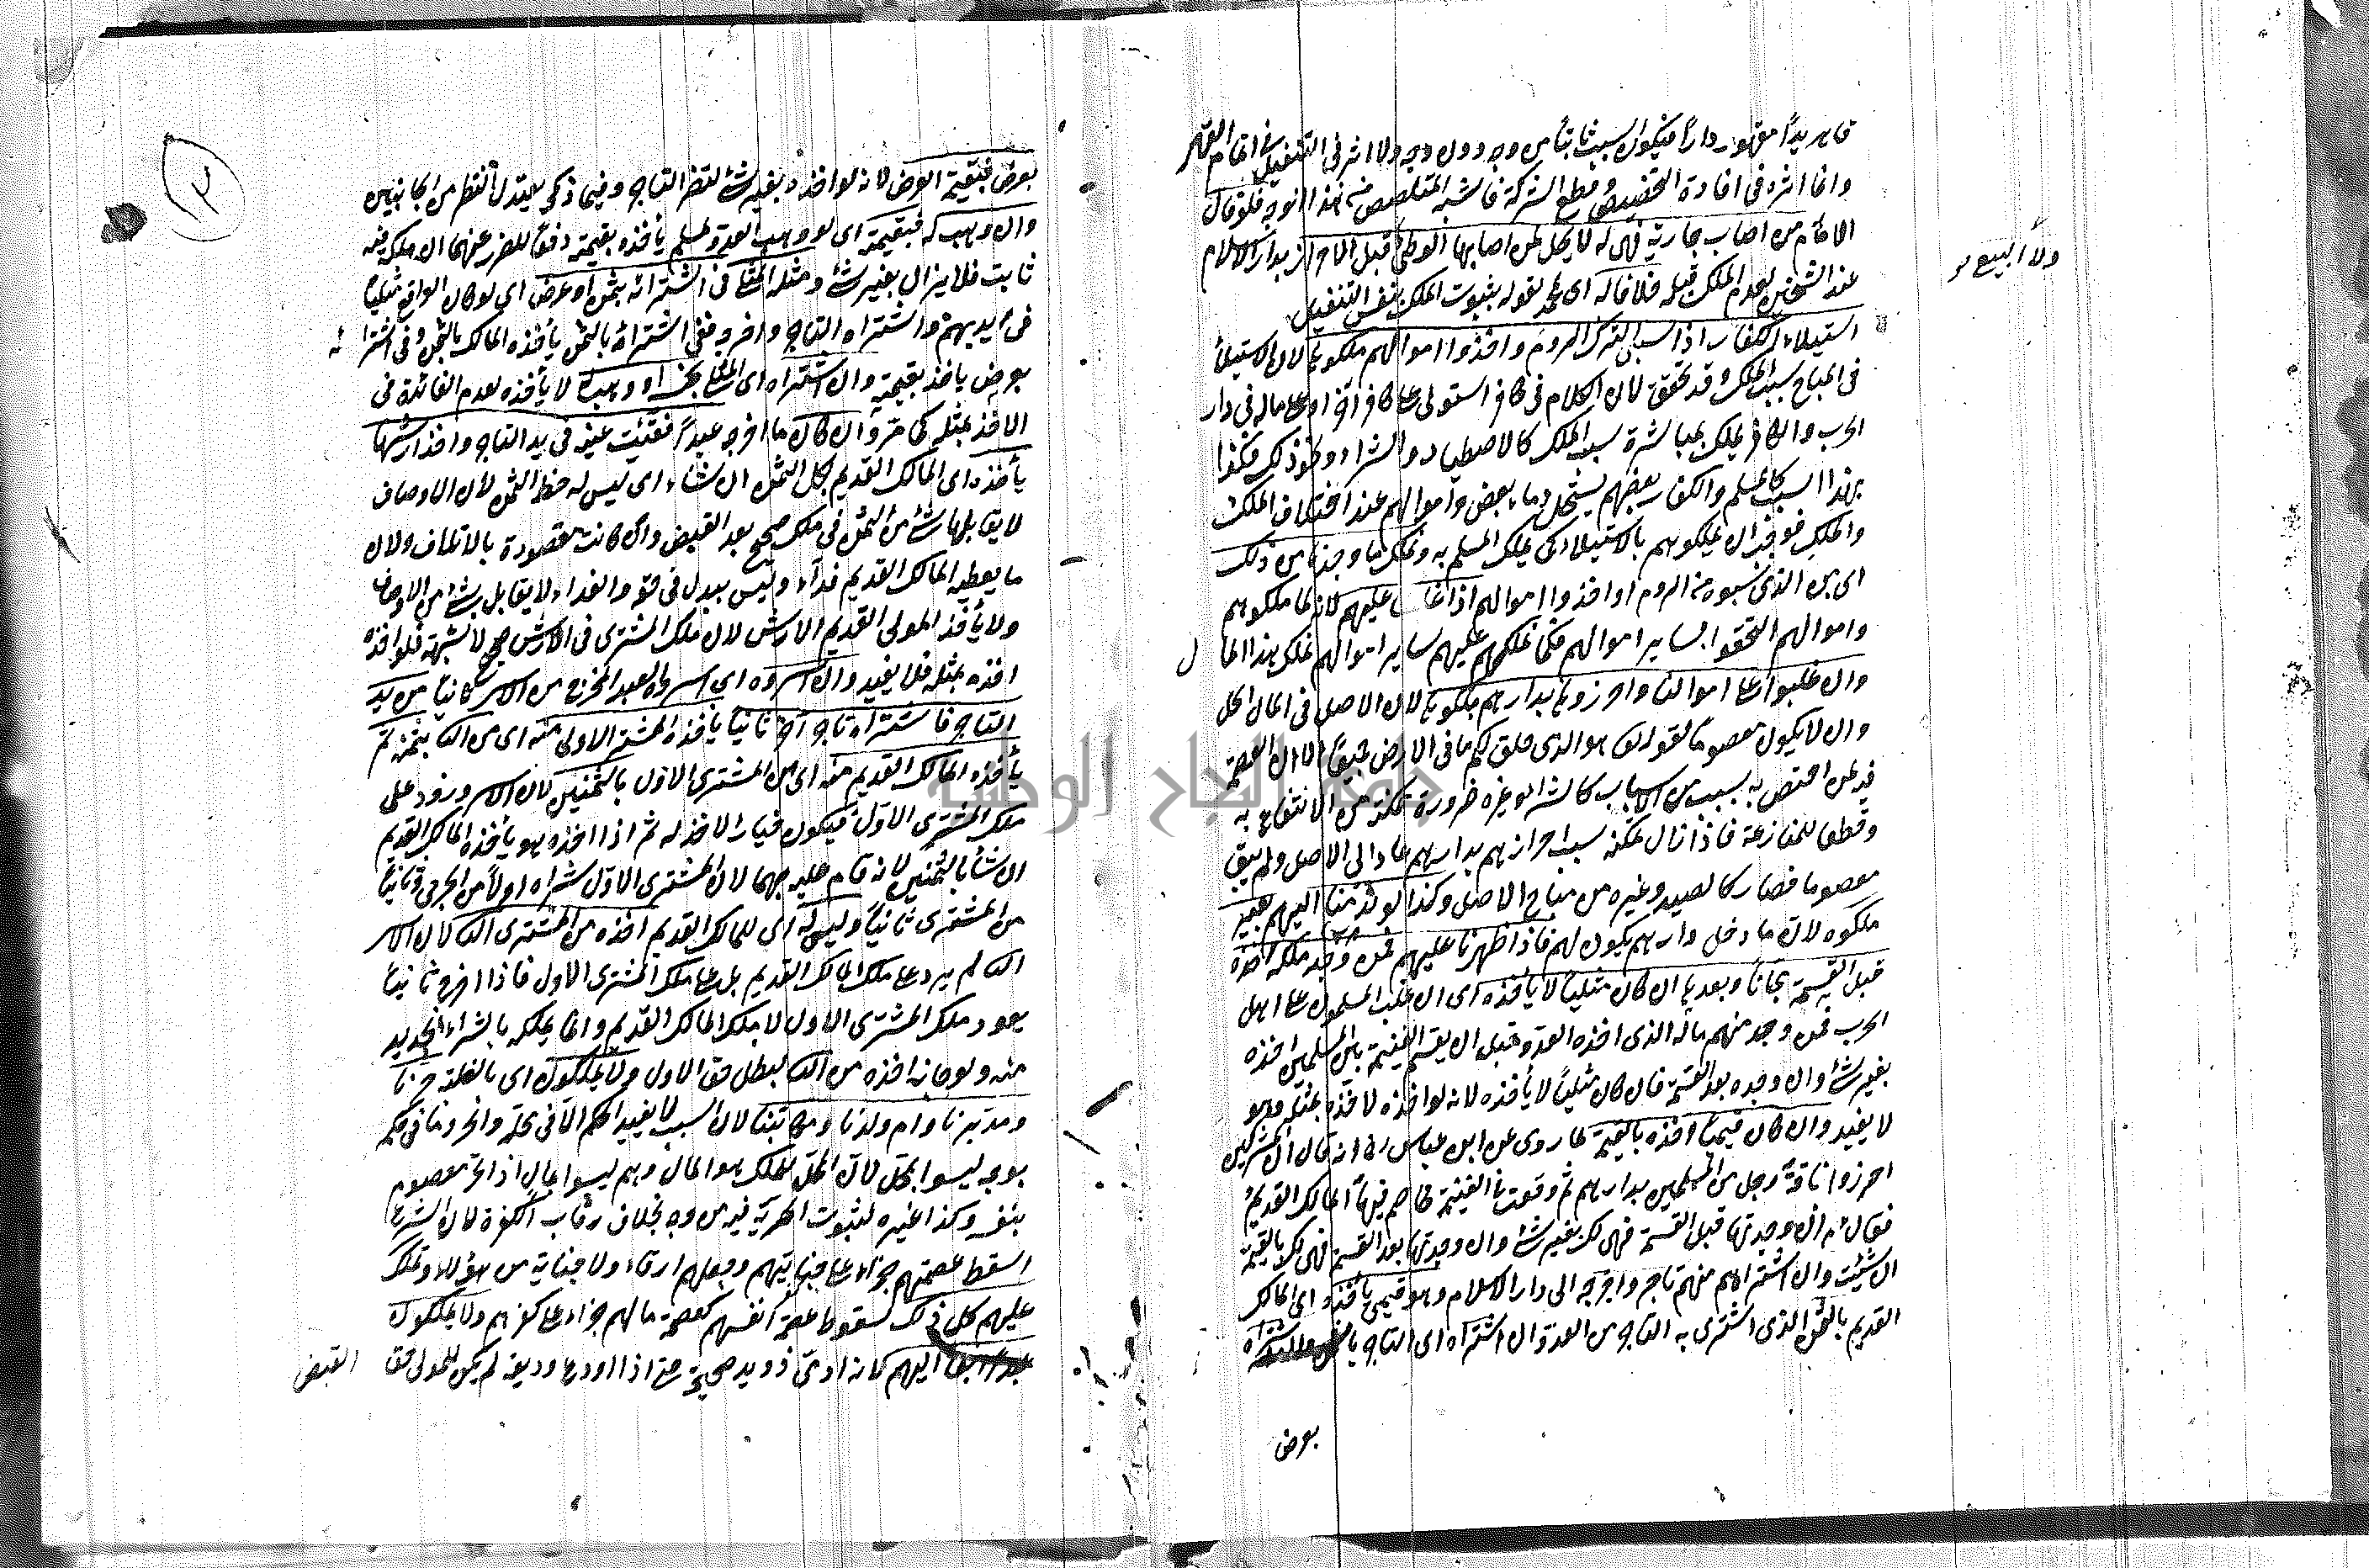 قاهر يداً مقهور داراً فيكون السبب ثابتاً من وجه دون وجه ولا اثر في التنفيل في اتمام القهر
وانما اثره في افادة التخصيص وقطع الشركة فاشبه المتلصص من هذا الوجه فلو قال
الامام من اصاب جارية فهي له لا يحل لمن اصابها الوطئ قبل الاحراز بدار الاسلام
ولا البيع
عند الشيخين لعدم الملك قبله خلافا له اى لمحمد لقوله بثبوت الملك بنفس التنفيل
استيلاء الكفار اذا سبى الترك الروم واخذوا اموالهم ملكوها لان الاستيلاء
فى المباح سبب الملك وقد تحقق لان الكلام فى كافر استولى على كافر آخر او على ماله فى دار
الحرب والكافر يملك بمباشرة سبب الملك كالاصطياد والشراء ونحو ذلك فكذا
بهذا السبب كالمسلم والكفار بعضهم يستحل دماء بعض واموالهم عند اختلاف الملك
والملك فوجب ان يملكوهم بالاستيلاء كما يملك المسلم به ونملك ما وجدنا من ذلك
اى من الذى سبوه من الروم او اخذوا اموالهم اذا غلبنا عليهم لانه لما ملكوهم
واموالهم التحقوا بساير اموالهم فكما نملكهم عليهم ساير اموالهم نملك هذا المال
وان غلبوا على اموالنا واحرزوها بدارهم ملكوها لان الاصل فى المال الحل
وان لا يكون معصوماً لقوله تعالى هو الذى خلق لكم ما فى الارض جميعاً الا ان العصمة
فيه لمن اختص به بسبب من الاسباب كالشراء وغيره ضرورة تمكنه من الانتفاع به
وقطعا للمنازعة فاذا زال تمكنه بسبب احرازهم بدارهم عاد الى الاصل ولم يبق
معصوما فصار كالصيد وغيره من مباح الاصل وكذا لو ند منا اليهم بعير
ملكوه لان ما دخل دارهم يكون لهم فاذا ظهرنا عليهم فمن وجد ملكه اخذه
قبل القسمة مجاناً وبعدها ان كان مثلياً لا يأخذه اى ان غلب المسلمون على اهل
الحرب فمن وجد منهم ماله الذى اخذه العدو قبل ان يقسم الغنيمة بين المسلمين اخذه
بغير شئ وان وجده بعد القسمة فان كان مثلياً لا يأخذه لانه لو اخذه لاخذه بمثله وهو
لا يفيد وان كان قيمياً اخذه بالقيمة لما روى عن ابن عباس رض انه قال ان المشركين
احرزوا ناقة رجل من المسلمين بدارهم ثم وقعت فى الغنيمة فخاصم فيها المالك القديم
فقال ءم ان وجدتها قبل القسمة فهى لك بغير شئ وان وجدتها بعد القسمة فهى لك بالقيمة
ان شئت وان اشتراه منهم تاجر واخرجه الى دار الاسلام وهو قيمى يأخذه اى المالك
القديم بالثمن الذى اشترى به التاجر من العدو وان اشتراه اى التاجر
بعرض
بعرض فبقيمة العرض لانه لو اخذه بغير شئ لتضر التاجر وفيما ذكر يعتدل النظر من الجانبين
وان وهب له فبقيمته اى لو وهب العدو لمسلم يأخذه بقيمته دفعاً للضرر عنهما لان ملكه فيه
ثابت فلا يزال بغير شئ ومثله المثلى فى اشترائه بثمن او عرض اى لو كان الواقع مثلياً
فى ايديهم واشتراه التاجر واخرجه ففى اشترائه بالثمن يأخذه المالك بالثمن وفى اشترائه
بعرض ياخذ بقيمته وان اشتراه اى المثلى بمثله او وهب له لا يأخذه لعدم الفائدة فى
الاخذ بمثله كما مر وان كان ما اخرجه عبداً ففقئت عينه فى يد التاجر واخذ ارشها
يأخذه اى المالك القديم بكل الثمن ان شاء اى ليس له حط الثمن لان الاوصاف
لا يقابلها شئ من الثمن فى ملك صحيح بعد القبض وان كانت مقصودة بالاتلاف ولان
ما يعطيه المالك القديم فداء وليس ببدل فى حقه والفداء لا يقابل بشئ من الاوصاف
ولا يأخذ المولى القديم الارش لان ملك المشترى فى الارش صحيح لا شبهة فلو اخذه
اخذه بمثله فلا يفيد وان اسروه اى اسروا العبد المخرج من الاسر ثانياً من يد
التاجر فاشتراه تاجر آخر ثانياً يأخذه المشترى الاول منه اى من الثانى بثمنه ثم
يأخذه المالك القديم منه اى من المشترى الاول بالثمنين لان الاسر ورود على
ملك المشترى الاول فيكون خيار الاخذ له ثم اذا اخذه هو يأخذه المالك القديم
ان شاء بالثمنين لانه قام عليه بهما لان المشترى الاول شراه اولاً من الحربى وثانياً
من المشترى ثانياً وليس له اى للمالك القديم اخذه من المشترى الثانى لان الاسر
الثانى لم يرد على ملك المالك القديم بل على ملك المشترى الاول فاذا اخرج ثانياً
يعود ملك المشترى الاول لا ملك المالك القديم وانما يملكه بالشراء الجديد
منه ولو جاز اخذه من الثانى لبطل حق الاول ولا يملكون اى بالغلبة حرنا
ومدبرنا وام ولدنا ومكاتبنا لان السبب لا يفيد الحكم الا فى محله والحر وما فى حكمه
بوجه ليسوا بمحل لان المحل للملك هو المال وهم ليسوا بمال اذ الحر معصوم
بنفسه وكذا غيره لثبوت الحرية فيه من وجه بخلاف رقاب الكفرة لان الشرع
اسقط عصمتهم جزاء على جنايتهم وجعلهم ارقاء ولا جناية من هؤلاء ونملك
عليهم كل ذلك لسقوط عصمة انفسهم كعصمة مالهم جزاء على كفرهم ولا يملكون
عبداً ابق اليهم لانه آدمى ذو يد صحيحة حتى اذا اودع وديعة لم يكن للمولى حق القبض
جامعة النجاح الوطنية